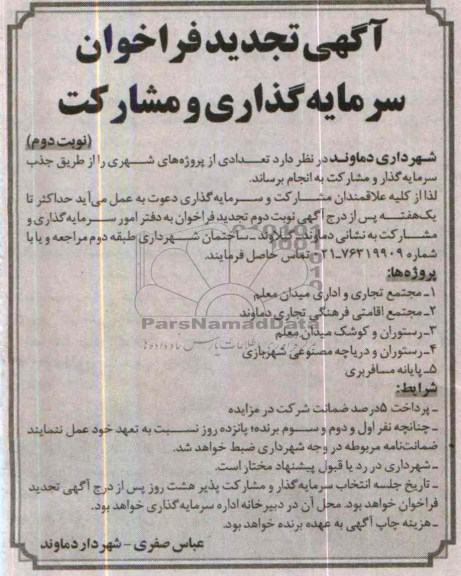 آگهی تجدید فراخوان
سرمایه گذاری و مشارکت
(نوبت دوم)
شهرداری دماوند در نظر دارد تعدادی از پروژه‌های شهری را از طریق جذب
سرمایه گذار و مشارکت به انجام برساند.
لذا از کلیه علاقمندان مشارکت و سرمایه گذاری دعوت به عمل می‌آید حداکثر تا
یک‌هفته پس از درج آگهی نوبت دوم تجدید فراخوان به دفتر امور سرمایه گذاری و
مشارکت به نشانی دماوند گیلاوند ـ ساختمان شهرداری طبقه دوم مراجعه و یا با
شماره ۷۶۳۱۹۹۰۹-۰۲۱ تماس حاصل فرمایند.
پروژه‌ها:
۱ـ مجتمع تجاری و اداری میدان معلم
۲ـ مجتمع اقامتی فرهنگی تجاری دماوند
ParsNamadData
۳ـ رستوران و کوشک میدان معلم
۴ـ رستوران و دریاچه مصنوعی شهربازی
۵ـ پایانه مسافربری
شرایط:
ـ پرداخت ۵درصد ضمانت شرکت در مزایده
ـ چنانچه نفر اول و دوم و سوم برنده؛ پانزده روز نسبت به تعهد خود عمل ننمایند
ضمانت‌نامه مربوطه در وجه شهرداری ضبط خواهد شد.
ـ شهرداری در رد یا قبول پیشنهاد مختار است.
ـ تاریخ جلسه انتخاب سرمایه‌گذار و مشارکت پذیر هشت روز پس از درج آگهی تجدید
فراخوان خواهد بود. محل آن در دبیرخانه اداره سرمایه‌گذاری خواهد بود.
ـ هزینه چاپ آگهی به عهده برنده خواهد بود.
عباس صفری - شهردار دماوند